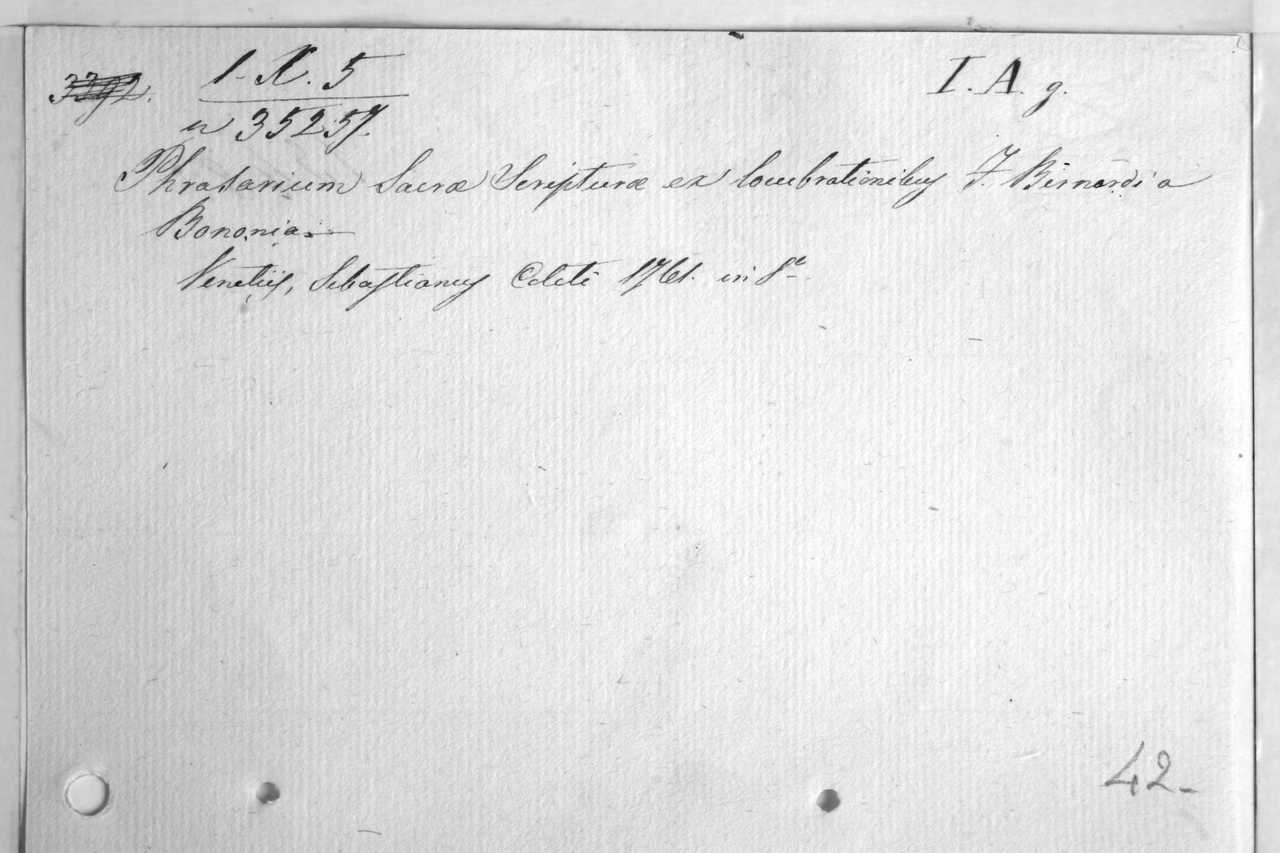 3392. 1-X.5 I.A.g.
n 35257.
Phrasarium Sacræ Scripturæ ex locubrationibus F. Bernardi a
Bononia.
Venetiis, Sebastianus Coleti 1761. in 8º
42-